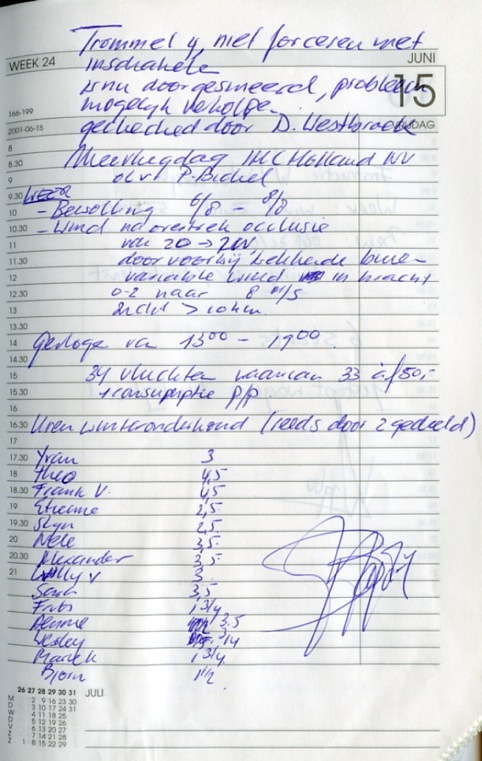 Trommel 4, niet forceren met
WEEK 24
inschakelen
JUNI
15
is nu doorgesmeerd, probleem
mogelijk verholpen
166-199
2001-06-15
gechecked door D. Westbroek
8
8.30
Vliegdag IHC Holland NV
9
o.l.v. P. Bickel
9.30
10
- Bewolking 6/8 - 8/8
10.30
- Wind na occlusie
11
van 20 → 200
11.30
door voorbij
12
variabele wind in kracht
12.30
0-2 naar 8 m/s
13
zicht > 10 km.
13.30
14
Gevlogen van 13 00 - 19 00
14.30
15
34 vluchten waarvan 33 à ƒ 50,-
15.30
+ consumptie p/p
16
16.30
Uren winteronderhoud (reeds door 2 gedeeld)
17
17.30
Yvan 3
18
Theo 4,5
18.30
Frank V. 4,5
19
Etienne 2,5
19.30
Stijn 2,5
20
Nele 3,5
20.30
Alexander 3,5
21
Willy V 3
Sarah 3,5
Frits 1 3/4
Dennie 3.5
Wesley 3/4
Marick 1 3/4
Bjorn 1 1/2
26 27 28 29 30 31 JULI
M 2 9 16 23 30
D 3 10 17 24 31
W 4 11 18 25
D 5 12 19 26
V 6 13 20 27
Z 7 14 21 28
Z 1 8 15 22 29